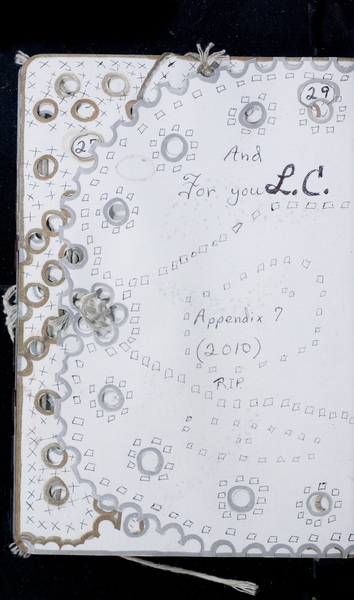 29
27
And
For you L.C.
Appendix 7
(2010)
R.I.P.